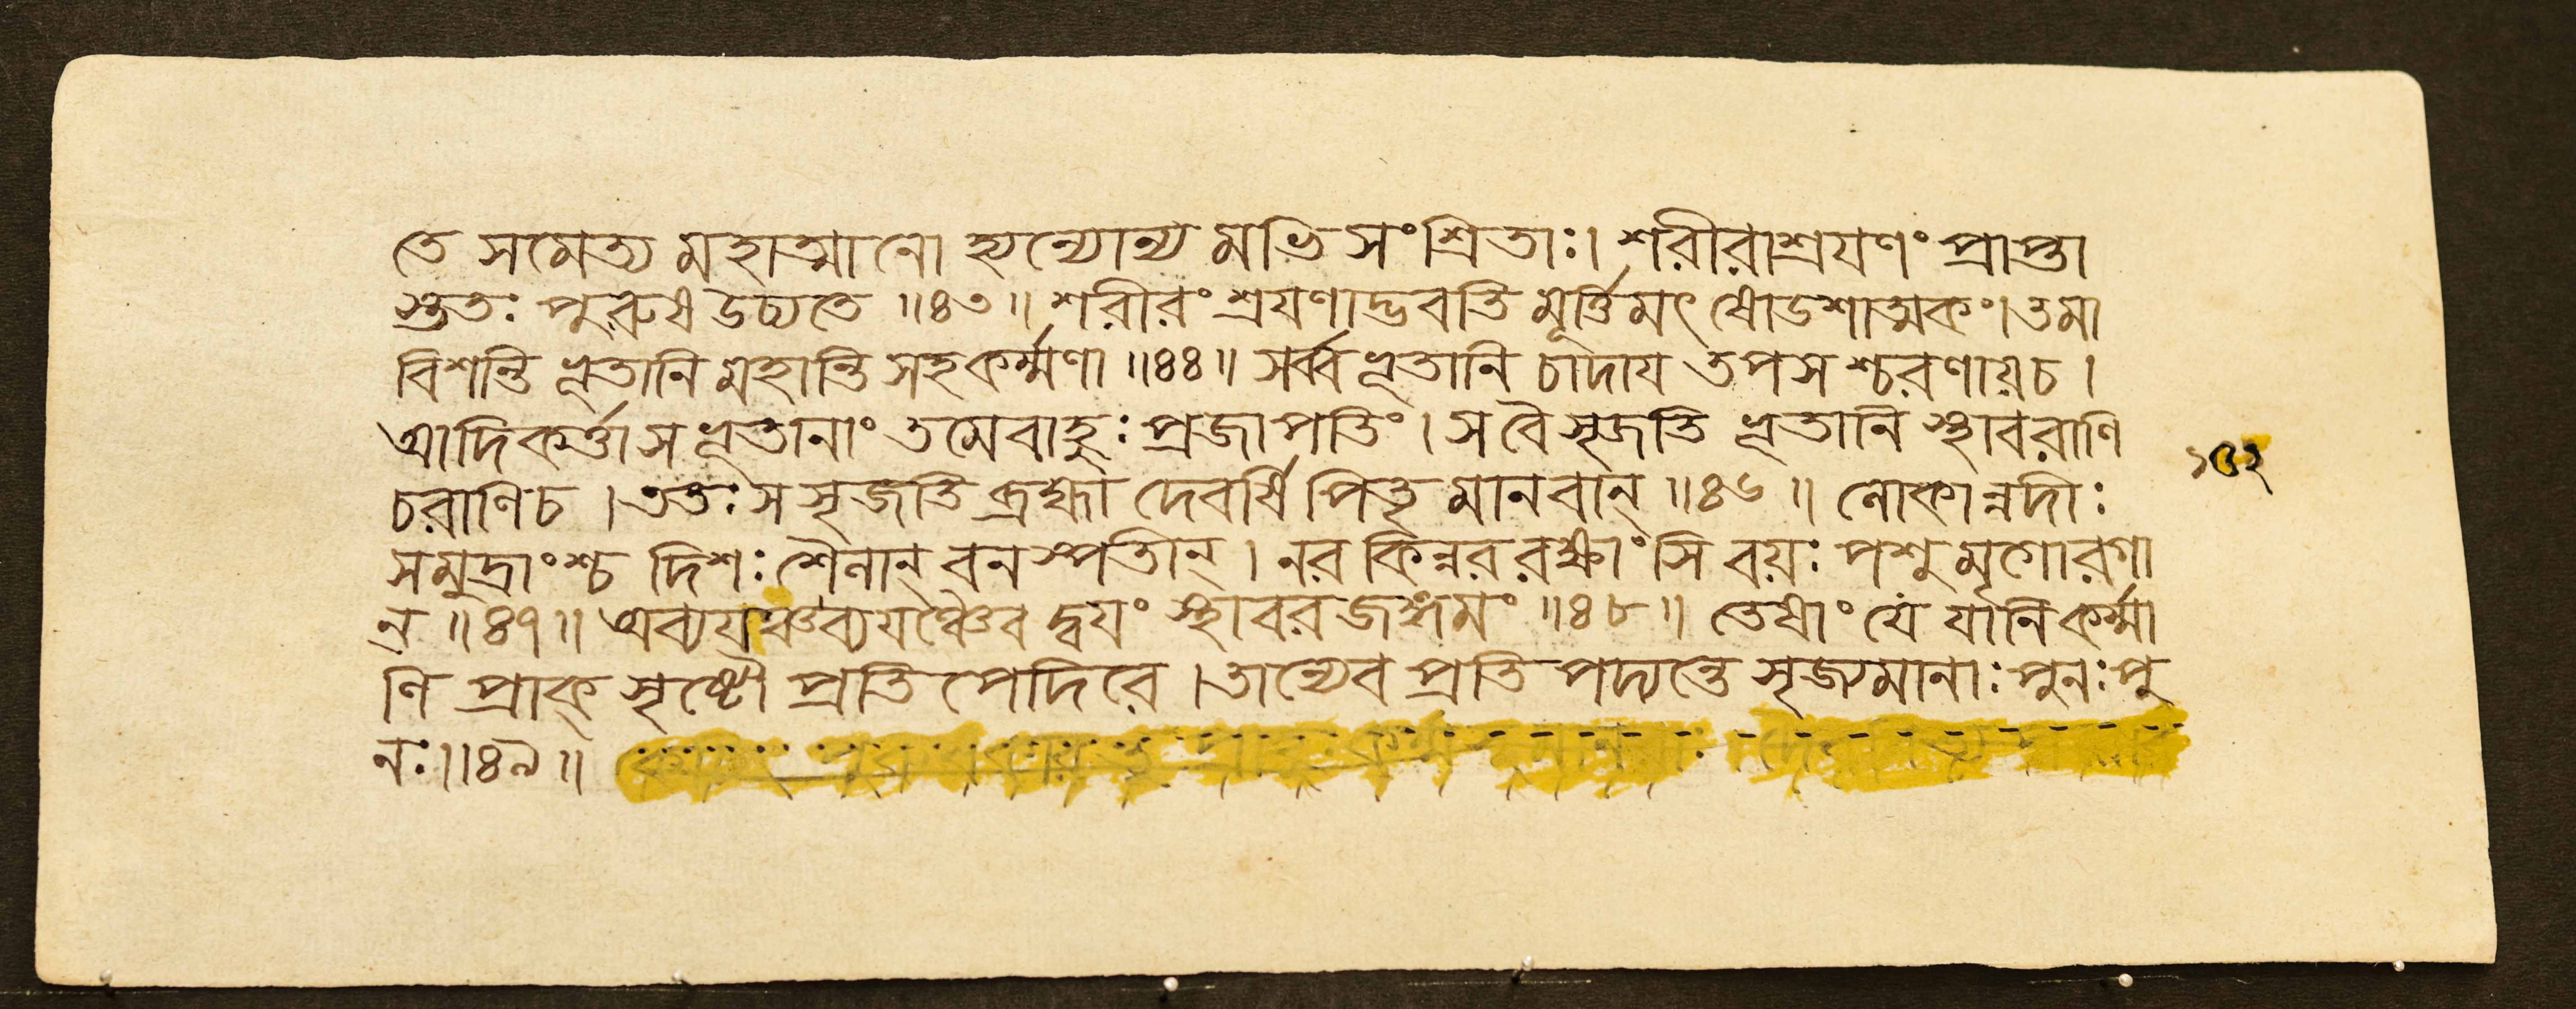 তে সমেত্য মহাত্মানো হ্যন্যোন্য মভি সংশ্রিতাঃ। শরীরাশ্রযণং প্রাপ্তা
স্ততঃ পুরুষ উচ্যতে ॥৪৩॥ শরীরং শ্রযণাদ্ভবতি মূর্ত্তিমৎ ষোডশাত্মকং। তমা
বিশন্তি ভূতানি মহান্তি সহকর্ম্মণা ॥৪৪॥ সর্ব্বভূতানি চাদায তপস শ্চরণায়চ।
আদিকর্ত্তাস ভূতানাং তমেবাহুঃ প্রজাপতিং। সবৈ সৃজতি ভূতানি স্থাবরাণি
চরাণিচ। ততঃ স সৃজতি ব্রহ্মা দেবর্ষি পিতৃ মানবান্ ॥৪৬॥ লোকান্নদীঃ
সমুদ্রাংশ্চ দিশঃ শৈলান্ বনস্পতীন্। নর কিন্নর রক্ষাংসি বয়ঃ পশু মৃগোরগা
ন ॥৪৭॥ অব্যযঞ্চব্যযঞ্চৈব দ্বযং স্থাবর জঙ্গমং ॥৪৮॥ তেষাং যে যানি কর্ম্মা
ণি প্রাক্ সৃষ্টৌ প্রতি পেদিরে। তান্যেব প্রতি পদ্যন্তে সৃজ্যমানাঃ পুনঃ পু
নঃ॥৪৯॥
১৫২